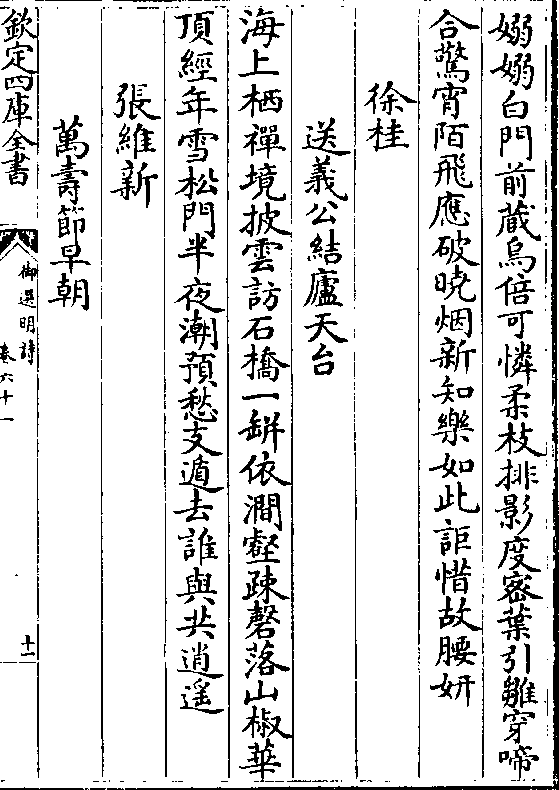 嫋嫋白門前蔵烏倍可憐柔枝排影度宻葉引雛穿啼
合驚宵陌飛應破曉烟新知樂如此詎惜故腰妍
徐桂
送義公結廬天台
海上栖禪境披雲訪石橋一缾依澗壑疎磬落山椒華
頂經年雪松門半夜潮預愁支遁去誰與共逍遥
張維新
萬壽節早朝
欽定四庫全書
御選明詩
卷六十一
十一